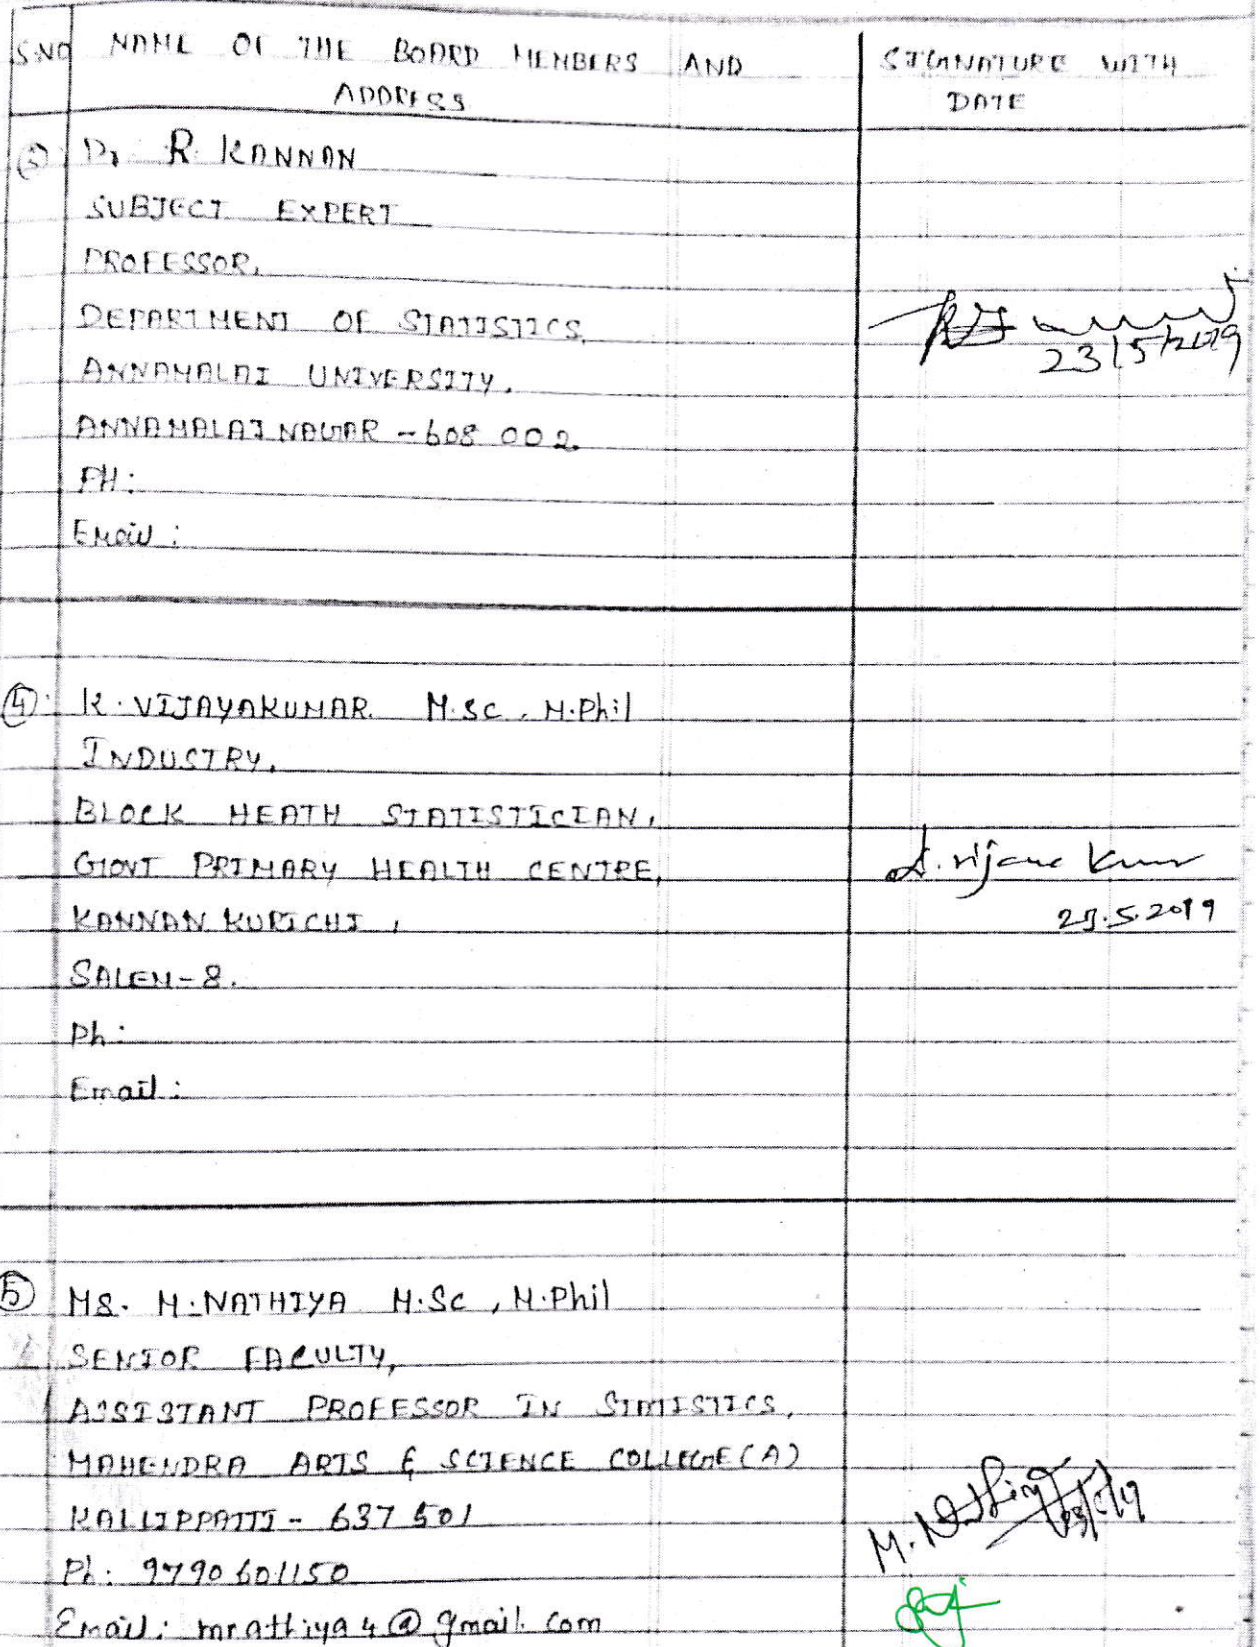 S.NO NAME OF THE BOARD MEMBERS AND ADDRESS SIGNATURE WITH DATE
(3) Dr R. KANNAN
SUBJECT EXPERT
PROFESSOR,
DEPARTMENT OF STATISTICS,
ANNAMALAI UNIVERSITY,
ANNAMALAI NAGAR - 608 002.
23/5/2019
PH:
Email:
(4) K. VIJAYAKUMAR. M.Sc, M.Phil
INDUSTRY,
BLOCK HEATH STATISTICIAN,
GOVT PRIMARY HEALTH CENTRE,
K. Vijaya Kumar
KANNAN KURICHI,
23.5.2019
SALEM-8.
Ph:
Email:
(5) MS. M.NATHIYA M.Sc, M.Phil
SENIOR FACULTY,
ASSISTANT PROFESSOR IN STATISTICS,
MAHENDRA ARTS & SCIENCE COLLEGE (A)
KALLIPPATTI - 637 501
M. Nathiya 23/5/19
Ph: 9790601150
Email: mrathiya4@gmail.com